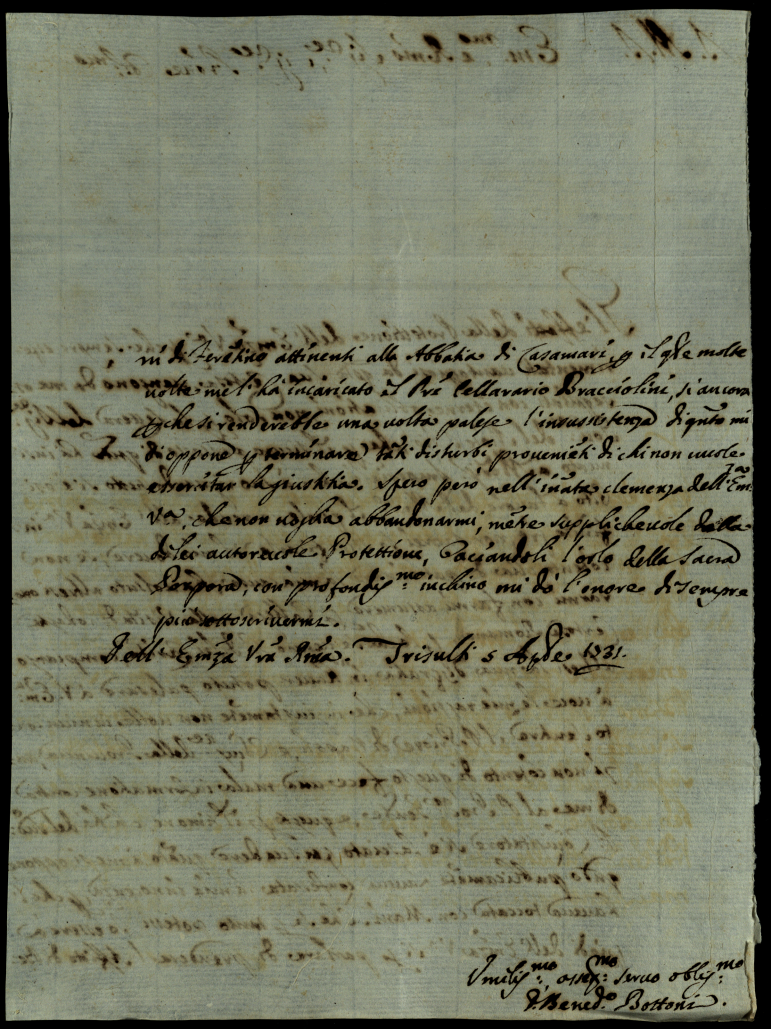 ni di Ferētino attinenti alla Abbatia di Casamari, p il qle molte
volte me l'hà incaricato il Prē Cellarario Bracciolini, si ancora
pche si renderebbe una volta palese l'insussistenza di qnto mi
di oppone p terminare tāti disturbi provenieti di chi non vuole
essercitar la giustitia. Spero però nell'inata clemenza dell'Emza
Vra, che non voglia abbandonarmi, mētre supplichevole della
di lei autorevole Protettione, baciandoli l'orlo della Sacra
Porpora, con profondissmo inchino mi dò l'onore di sempre
più sottoscrivermi.
Dell' Emza Vra Rma. Trisulti 5 Aple 1731.
Umilissmo, ossemo servo obligmo
D. Bened.o Bottoni.